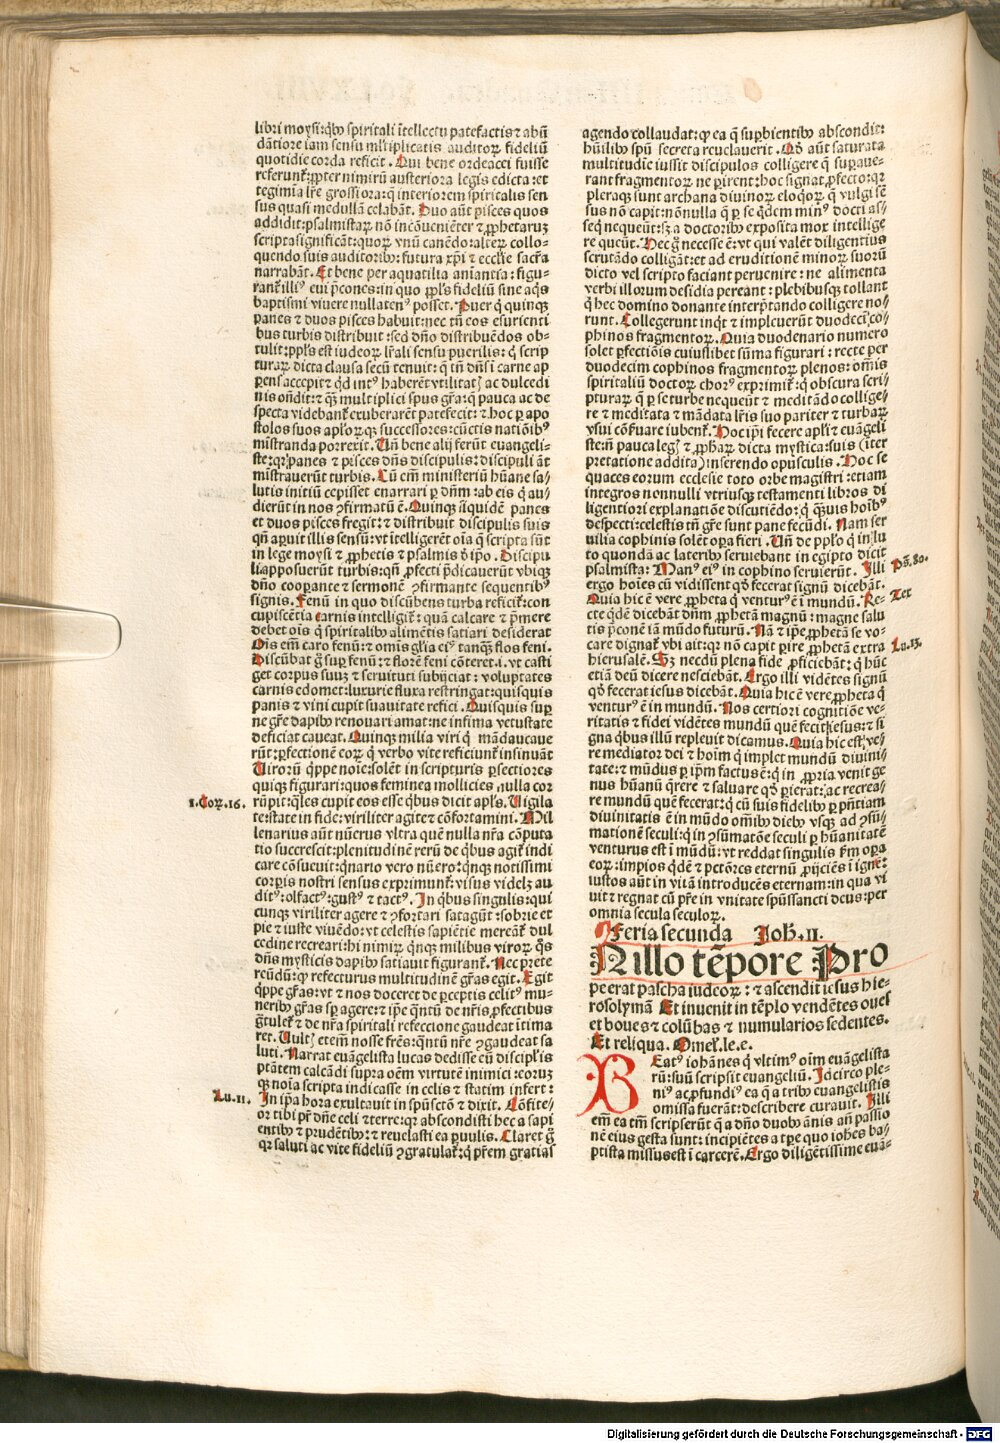 libri moysi: qb9 spiritali ītellectu patefactis ⁊ abū
dātiore iam sensu ml'tiplicatis auditoꝝ fideliū
quotidie corda reficit. Qui bene ordeacci fuisse
referunt᷑: ꝓpter nimirū austeriora legis edicta: et
tegimīa lr̄e grossiora: q̄ interiorem spiritalis sen
sus quasi medullā celabāt. Duo aūt pisces quos
addidit: psalmistaꝝ nō incōueniēter ⁊ ꝓphetaruꝫ
scripta significāt: quoꝝ vnū canēdo: alter collo-
quendo suis auditorib9: futura xp̄i ⁊ eccl'ie sacr̄a
narrabāt. Et bene per aquatilia aniantia: figu-
rant᷑ illi9 eui p̄cones: in quo ppl's fideliū sine aq̄s
baptismi viuere nullaten9 posset. Puer q̇ quinqꝫ
panes ⁊ duos pisces habuit: nec tn̄ eos esurienti
bus turbis distribuit: sed dn̄o distribuēdos ob-
tulit: ppl's est iudeoꝝ lr̄ali sensu puerilis: q̇ scrip
turaꝝ dicta clausa secū tenuit: q̄ tn̄ dn̄s ī carne ap
parens accepit ⁊ qd int9 haberēt vtilitatꝭ ac dulcedi
nis on̄dit: ⁊ q̄ꝫ multiplici sp̄us gr̄a: q̄ pauca ac de
specta videbant᷑ exuberarēt patefecit: ⁊ hoc ꝑ apo
stolos suos apl'oꝝqꝫ successores: cūctis natiōib9
mīstranda porrexit. Vn̄ bene alij ferūt euangeli-
ste: qꝛ panes ⁊ pisces dn̄s discipulis: discipuli āt
mīstrauerūt turbis. Cū em̄ ministeriū hūane sa-
lutis initiū cepisset enarrari ꝑ dn̄m: ab eis q̇ au-
dierūt in nos ꝯfirmatū ē. Quinqꝫ siquidē panes
et duos pisces fregit: ⁊ distribuit discipulis suis
qn̄ aꝑuit illis sensū: vt ītelligerēt oīa q̄ scripta sūt
in lege moysi ⁊ ꝓphetis ⁊ psalmis d̄ ip̄o. Discipu
li apposuerūt turbis: qn̄ ꝓfecti p̄dicauerūt vbiqꝫ
dn̄o cooꝑante ⁊ sermonē ꝯfirmante sequentib9
signis. Fenū in quo discūbens turba reficit᷑: con
cupiscētia carnis intelligit᷑: quā calcare ⁊ p̄mere
debet oīs q̇ spiritalib9 alimētis satiari desiderat
Oīs em̄ caro fenū: ⁊ omīs gl'ia ei9 tanqꝫ flos feni.
Discūbat g̊ suꝑ fenū: ⁊ florē feni cōterer. i. vt casti
get corpus suuꝫ ⁊ seruituti subijciat: voluptates
carnis edomet: luxurie fluxa restringat: quisquis
panis ⁊ vini cupit suauitate refici. Quisquis suꝑ
ne gr̄e dapib9 renouari amat: ne infima vetustate
deficiat caueat. Quinqꝫ milia viri q̇ māducaue
rūt: ꝑfectionē eoꝝ q̇ verbo vite reficiunt᷑ insinuāt
Viroꝝ q̇ppe noīe: solēt in scripturis ꝑfectiores
quiqꝫ figurari: quos feminea mollicies nulla cor
rūpit: q̄les cupit eos esse qb9 dicit apl's. Vigila
te: state in fide: viriliter agite ⁊ cōfortamini. Mil
lenarius aūt nūerus vltra quē nulla nr̄a cōputa
tio succrescit: plenitudinē rerū de qb9 agit᷑ indi
care cōsueuit: q̇nario vero nūero: q̇nqꝫ notissimi
corꝑis nostri sensus exprimunt᷑: visus videlꝫ au
dit9: olfact9: gust9 ⁊ tact9. In qb9 singulis: qui
cunqꝫ viriliter agere ⁊ ꝯfortari satagūt: sobrie et
pie ⁊ iuste viuēdo: vt celestis sapiētie mereāt᷑ dul
cedine recreari: hi nimiꝝ q̇nqꝫ milibus viroꝝ q̄s
dn̄s mysticis dapib9 satiauit figurant᷑. Nec p̄tere
reūdū: qꝫ refecturus multitudinē gr̄as egit. Egit
q̇ppe gr̄as: vt ⁊ nos doceret de ꝑceptis celit9 mu-
nerib9 gr̄as sꝑ agere: ⁊ ip̄e q̄ntū de nr̄is ꝓfectibus
g̊tulet᷑ ⁊ de nr̄a spiritali refeccione gaudeat ītima
ret. Vultꝭ etem̄ nosse fr̄es: q̄ntū nr̄e ꝯgaudeat sa
luti. Narrat euāgelista lucas dedisse eū discipl'is
ptātem calcādi supra oēm virtutē inimici: eoruꝫ
qꝫ noīa scripta indicasse in celis ⁊ statim infert:
Lu. 11. In ip̄a hora exultauit in spūsctō ⁊ dixit. Cōfite-
or tibi pr̄ dn̄e celi ⁊ terre: qꝛ abscondisti hec a sapi
entib9 ⁊ prudētib9: ⁊ reuelasti ea ꝑuulis. Claret g̊
qꝛ saluti ac vite fideliū ꝯgratulat᷑: q̇ pr̄em gratias
1. Coꝝ. 16.
agendo collaudat: ꝙ ea q̄ suꝑbientib9 abscondit:
hūilib9 spū secreta reuelauerit. Qd aūt saturata
multitudie iussit discipulos colligere q̄ suꝑaue-
rant fragmentoꝝ ne ꝑirent: hoc signat ꝓfecto: qꝛ
pleraqꝫ sunt archana diuinoꝝ eloqoꝝ q̄ vulgi sē
sus nō capit: nōnulla q̄ ꝑ se qdem min9 docti as-
seq̇ nequeūt: sꝫ a doctorib9 exposita mox intellige
re queūt. Hec g̊ necesse ē: vt qui valēt diligentius
scrutādo colligāt: et ad eruditionē minoꝝ suorū
dicto vel scripto faciant peruenire: ne alimenta
verbi illorum desidia pereant: plebibusqꝫ tollant᷑
q̇ hec domino donante interp̄tando colligere no-
runt. Collegerunt inqt ⁊ impleuerūt duodecī co-
phinos fragmentoꝝ. Quia duodenario numero
solet ꝑfectiōis cuiuslibet sūma figurari: recte per
duodecim cophinos fragmentoꝝ plenos: omīs
spiritaliū doctoꝝ chor9 exprimit᷑: q̇ obscura scri-
pturaꝝ q̄ ꝑ se turbe nequeūt ⁊ meditādo collige-
re ⁊ meditata ⁊ mādata lr̄is suo pariter ⁊ turbaꝝ
vsui cōseruare iubent᷑. Hoc ip̄i fecere apl'i ⁊ euāgeli
ste: n̄ pauca legꝭ ⁊ ꝓphaꝝ dicta mystica: suis (īter
pretatione addita) inserendo opusculis. Hoc se
quaces eorum ecclesie toto orbe magistri: etiam
integros nonnulli vtriusqꝫ testamenti libros di
ligentiori explanatiōe discutiēdo: q̇ q̄ꝫuis hoīb9
despecti: celestis tn̄ gr̄e sunt pane fecūdi. Nam ser
uilia cophinis solēt oꝑa fieri. Vn̄ de ppl'o q̇ in lu
to quondā ac laterib9 seruiebant in egipto dicit
psalmista: Man9 ei9 in cophino seruierūt. Illi
ergo hoīes cū vidissent qd fecerat signū dicebāt.
Quia hic ē vere ꝓpheta q̇ ventur9 ē ī mundū. Re-
cte qdē dicebāt dn̄m ꝓphetā magnū: magne salu
tis p̄conē iā mūdo futurū. Nā ⁊ ip̄e ꝓphetā se vo-
care dignat᷑ vbi ait: qꝛ nō capit ꝑire ꝓphetā extra
hierusalē. Sꝫ necdū plena fide ꝓficiebāt: q̇ hūc
etiā deū dicere nesciebāt. Ergo illi vidētes signū
qd fecerat iesus dicebāt. Quia hic ē vere ꝓpheta q̇
ventur9 ē in mundū. Nos certiori cognitiōe ve-
ritatis ⁊ fidei vidētes mundū quē fecit iesus: ⁊ si
gna qbus illū repleuit dicamus. Quia hic est ve-
re mediator dei ⁊ hoīm q̇ implet mundū diuini-
tate: ⁊ mūdus ꝑ ip̄m factus ē: q̇ in ꝓpria venit ge
nus hūanū q̄rere ⁊ saluare qd ꝑierat: ac recrea-
re mundū quē fecerat: q̇ cū suis fidelib9 ꝑ pn̄tiam
diuinitatis ē in mūdo omīb9 dieb9 vsqꝫ ad ꝯsū-
mationē seculi: q̇ in ꝯsūmatōe seculi ꝑ hūanitatē
venturus est ī mūdū: vt reddat singulis ẜm oꝑa
eoꝝ: impios qdē ⁊ pctōres eternū ꝓijciēs ī ignē:
iustos aūt in vitā introducēs eternam: in qua vi
uit ⁊ regnat cū pr̄e in vnitate spūssancti deus: per
omnia secula seculoꝝ.
Ps. 80.
Tex
Lu. 13.
Feria secunda Joh. II.
In illo tēpore Pro
pe erat pascha iudeoꝝ: ⁊ ascendit iesus hie-
rosolymā Et inuenit in tēplo vendētes oues
et boues ⁊ colūbas ⁊ numularios sedentes.
Et reliqua. Omel'. le. e.
BEat9 iohānes q̇ vltim9 oīm euāgelista
rū: suū scripsit euangeliū. Idcirco ple-
ni9 ac ꝓfundi9 ea q̄ a trib9 euangelistis
omissa fuerāt: describere curauit. Illi
em̄ ea tm̄ scripserūt q̄ a dn̄o duob9 ānis an̄ passio
nē eius gesta sunt: incipiētes a tꝑe quo iohēs ba-
ptista missus est ī carcerē. Ergo diligētissime euā-
Digitalisierung gefördert durch die Deutsche Forschungsgemeinschaft - DFG